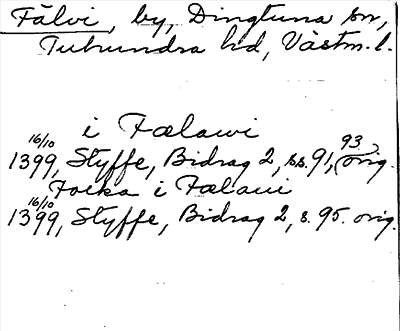 Fälvi, by, Dingtuna sn,
Tuhundra hd, Västm. l.
i Fælawi
16/10 1399, Styffe, Bidrag 2, ss. 91, 93, orig.
Foika i Fælaui
16/10 1399, Styffe, Bidrag 2, s. 95. orig.